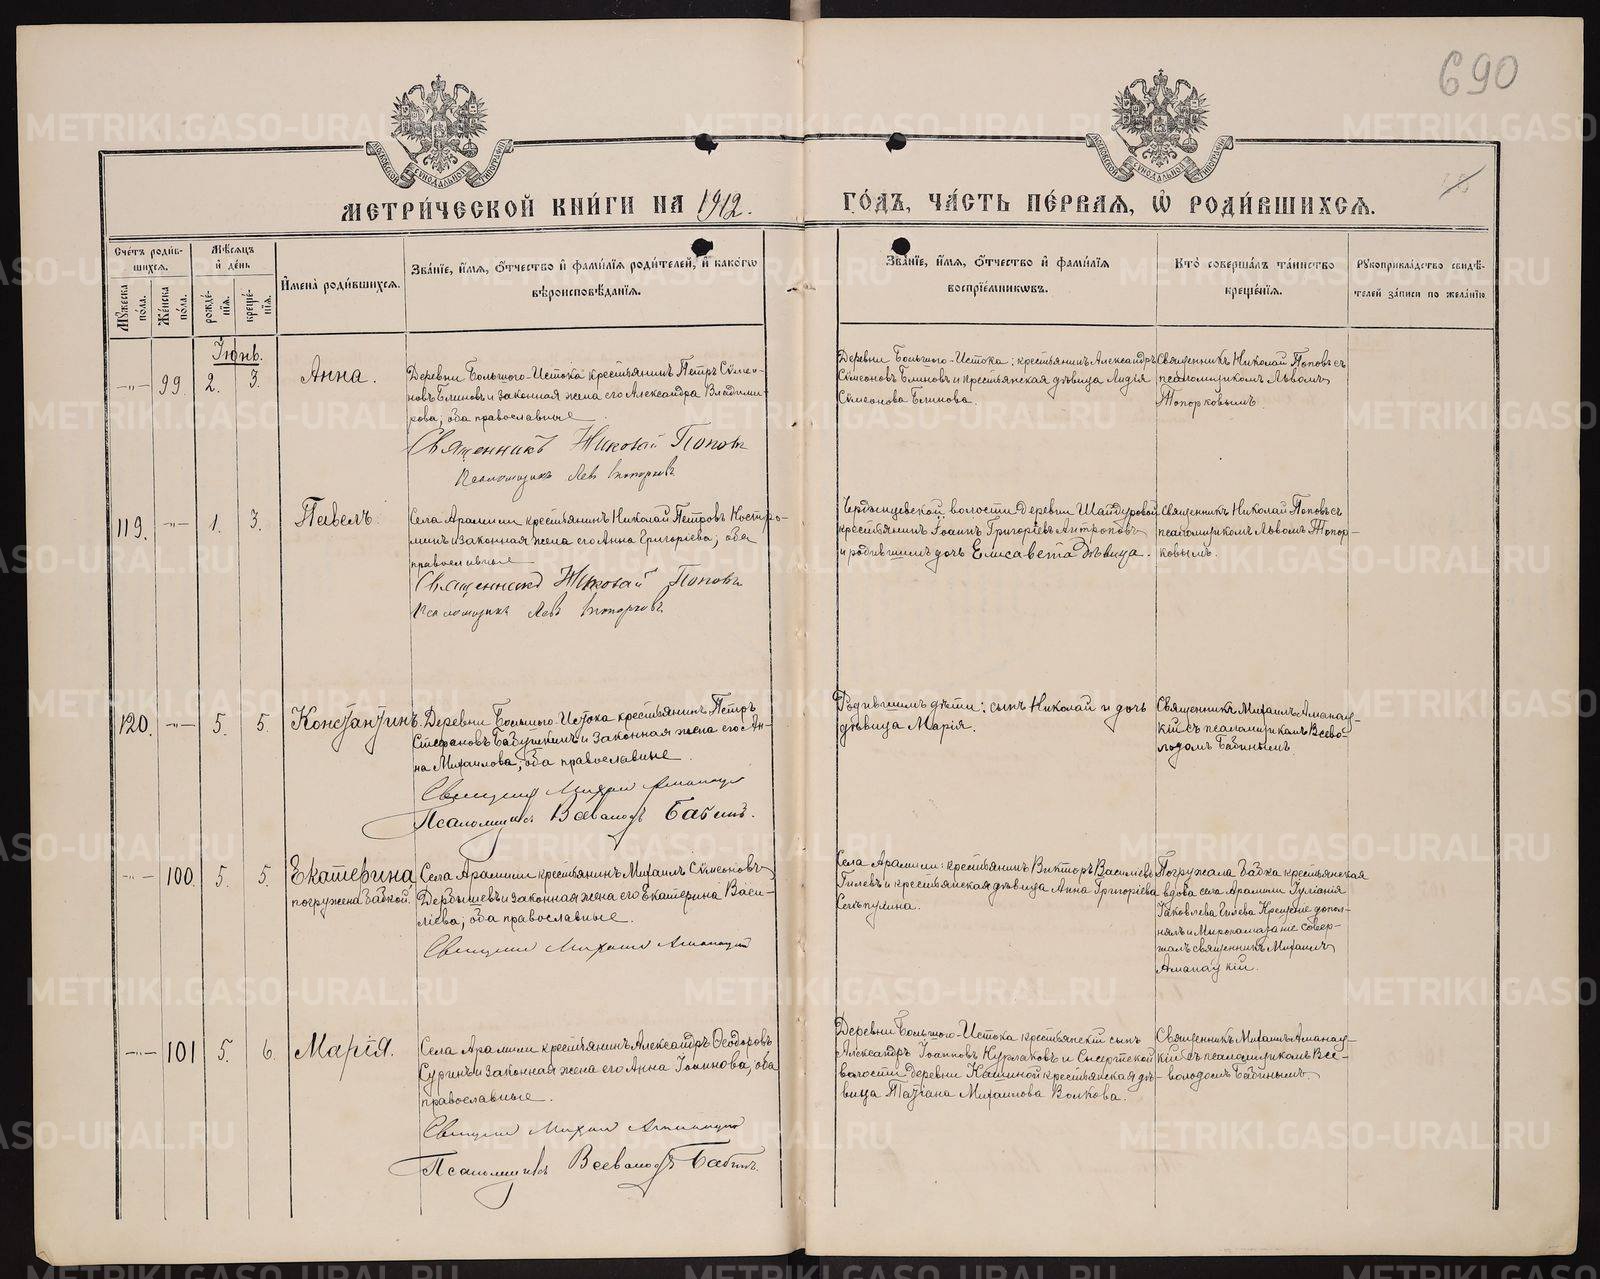 690
МЕТРИ́ЧЕСКОЙ КНИ́ГИ НА 1912.
ГО́ДЪ, ЧА́СТЬ ПЕ́РВАЯ, Ѡ҆ РОДИ́ВШИХСЯ.
МОСКОВСКОЙ СѴНОДАЛЬНОЙ ТИПОГРАФІИ
МОСКОВСКОЙ СѴНОДАЛЬНОЙ ТИПОГРАФІИ
Сче́тъ роди́в-
шихся.
Мꙋ́жеска по́ла.
Же́нска по́ла.
Мѣ́сяцъ
и҆ де́нь
рожде́-
нія.
креще́-
нія.
И҆мена̀ роди́вшихся.
Зва́ніе, и҆́мя, ѻ҆́тчество и҆ фами́лія роди́телей, и҆ како́гѡ
вѣроисповѣ́данія.
Зва́ніе, и҆́мя, ѻ҆́тчество и҆ фами́лія
воспріе́мникѡвъ.
Кто̀ соверша́лъ та́инство
креще́нія.
Рꙋкоприкла́дство свидѣ́-
телей за́писи по жела́нію.
Іюнь.
—„— 99 2. 3. Анна.
Деревни Большого-Истока крестьянинъ Петръ Сѵмео-
новъ Блиновъ и законная жена его Александра Владими-
рова; оба православные
Священникъ Николай Поповъ
Псаломщикъ Левъ Топорковъ
Деревни Большого-Истока: крестьянинъ Александръ
Сѵмеоновъ Блиновъ и крестьянская дѣвица Лидія
Сѵмеонова Блинова.
Священникъ Николай Поповъ съ
псаломщикомъ Львомъ
Топорковымъ
119. —„— 1. 3. Павелъ
Села Арамили крестьянинъ Николай Петровъ Костро-
минъ и законная жена его Анна Григоріева; оба
православные
Священникъ Николай Поповъ
Псаломщикъ Левъ Топорковъ
волости деревни Шайдуровой
крестьянинъ Іоаннъ Григоріевъ Антроповъ
и родившимъ дочь Елисавета дѣвица.
Священникъ Николай Поповъ съ
псаломщикомъ Львомъ Топор-
ковымъ.
120. —„— 5. 5. Константинъ
Деревни Большого-Истока крестьянинъ Петръ
Стефановъ Бабушкинъ и законная жена его Ан-
на Михаилова; оба православные
Священникъ Михаилъ Аманацкій
Псаломщикъ Всеволодъ Бабинъ.
Родившимъ дѣти: сынъ Николай и дочь
дѣвица Марія.
Священникъ Михаилъ Аманац-
кій съ псаломщикомъ Всево-
лодомъ Бабинымъ
—„— 100. 5. 5. Екатерина,
погружена бабкой.
Села Арамили крестьянинъ Михаилъ Сѵмеоновъ
Дербышевъ и законная жена его Екатерина Васи-
ліева; оба православные.
Священникъ Михаилъ Аманацкій
Села Арамили: крестьянинъ Викторъ Василіевъ
Гилевъ и крестьянская дѣвица Анна Григоріева
Погружала бабка крестьянская
вдова села Арамили Іуліанія
Іаковлева Гилева Крещеніе допол-
нялъ и Миропомазаніе совер-
шалъ священникъ Михаилъ
Аманацкій.
—„— 101 5. 6. Марія.
Села Арамили крестьянинъ Александръ Ѳеодоровъ
Суринъ и законная жена его Анна Іоаннова; оба
православные.
Священникъ Михаилъ Аманацкій
Псаломщикъ Всеволодъ Бабинъ.
Деревни Большого-Истока крестьянскій сынъ
Александръ Іоанновъ Курлаковъ и Сысертской
волости деревни Кашиной крестьянская дѣ-
вица Татіана Михаилова Волкова.
Священникъ Михаилъ Аманац-
кій съ псаломщикомъ Все-
володомъ Бабинымъ.
METRIKI.GASO-URAL.RU